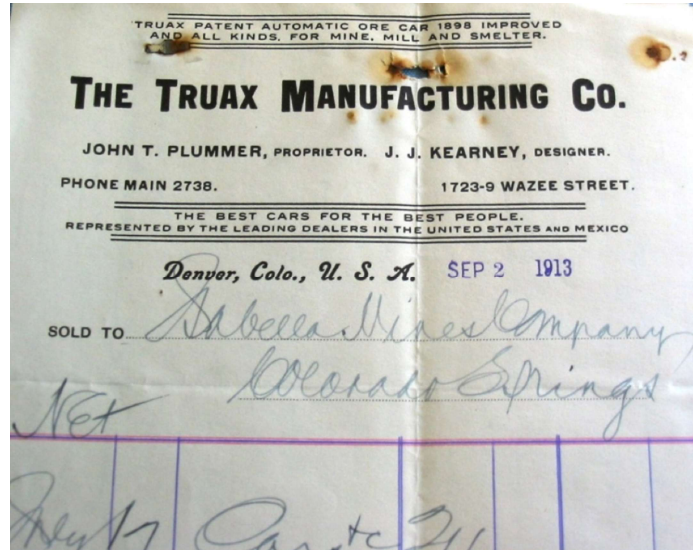 TRUAX PATENT AUTOMATIC ORE CAR 1898 IMPROVED
AND ALL KINDS, FOR MINE, MILL AND SMELTER.
THE TRUAX MANUFACTURING CO.
JOHN T. PLUMMER, PROPRIETOR. J. J. KEARNEY, DESIGNER.
PHONE MAIN 2738. 1723-9 WAZEE STREET.
THE BEST CARS FOR THE BEST PEOPLE.
REPRESENTED BY THE LEADING DEALERS IN THE UNITED STATES AND MEXICO
Denver, Colo., U. S. A. SEP 2 1913
SOLD TO Isabella Mines Company
Colorado Springs
Net